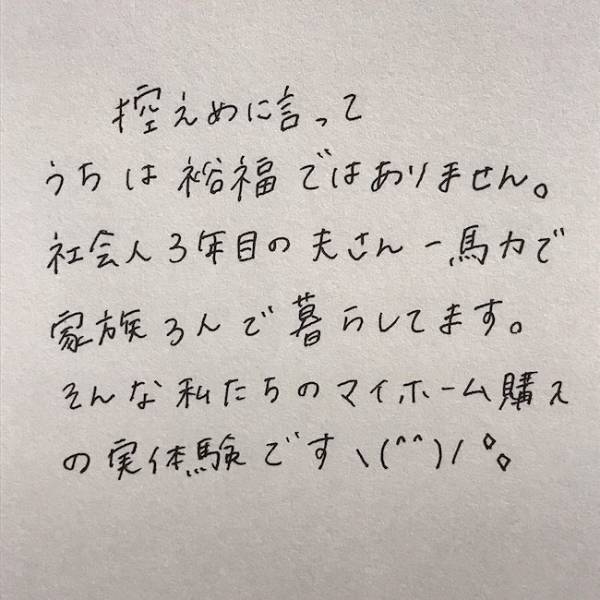 控えめに言って
うちは裕福ではありません。
社会人3年目の夫さん一馬力で
家族3人で暮らしてます。
そんな私たちのマイホーム購入
の実体験です\(^^)/°。